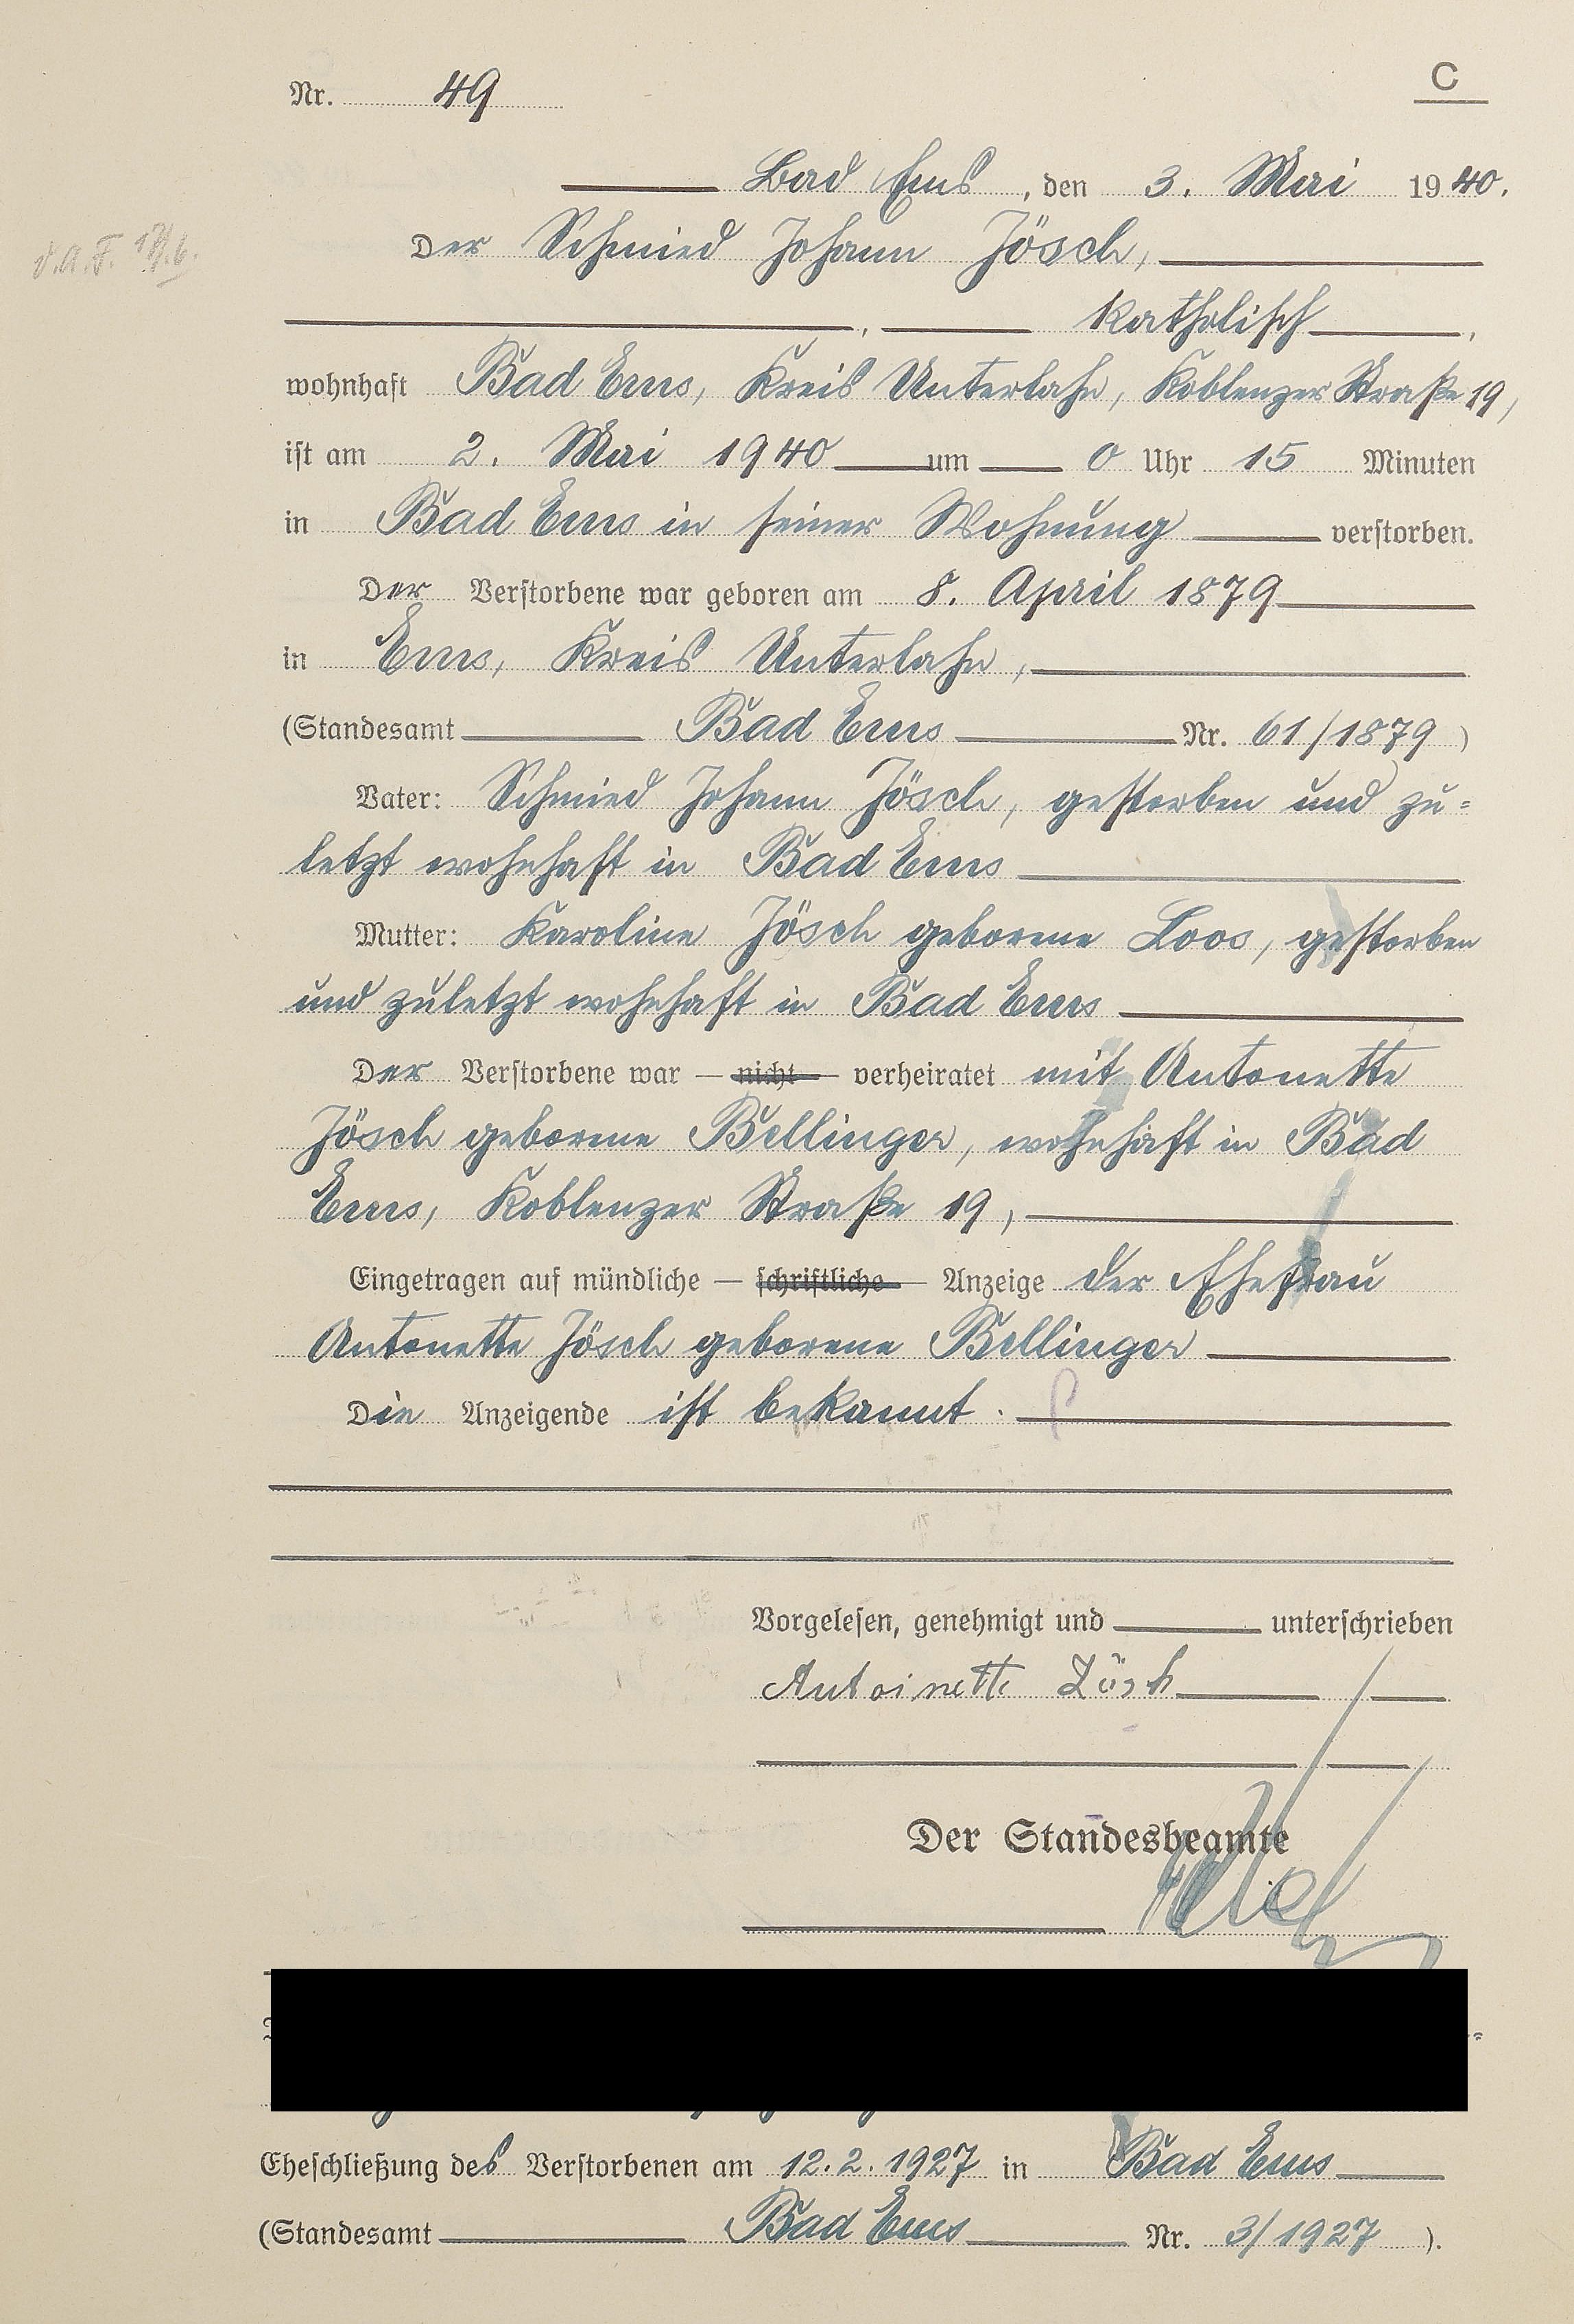 Nr. 49
C
Bad Ems, den 3. Mai 1940.
Der Schmied Johann Jösch,
, katholisch,
wohnhaft Bad Ems, Kreis Unterlahn, Koblenzer Straße 19,
ist am 2. Mai 1940 um 0 Uhr 15 Minuten
in Bad Ems in seiner Wohnung verstorben.
Der Verstorbene war geboren am 8. April 1879
in Ems, Kreis Unterlahn,
(Standesamt Bad Ems Nr. 61/1879)
Vater: Schmied Johann Jösch, gestorben und zu=
letzt wohnhaft in Bad Ems
Mutter: Karoline Jösch geborene Loos, gestorben
und zuletzt wohnhaft in Bad Ems
Der Verstorbene war — nicht — verheiratet mit Antonette
Jösch geborene Bellinger, wohnhaft in Bad
Ems, Koblenzer Straße 19,
Eingetragen auf mündliche — schriftliche — Anzeige der Ehefrau
Antonette Jösch geborene Bellinger
Die Anzeigende ist bekannt.
Vorgelesen, genehmigt und unterschrieben
Antoinette Jösch
Der Standesbeamte
Eheschließung des Verstorbenen am 12.2.1927 in Bad Ems
(Standesamt Bad Ems Nr. 3/1927).